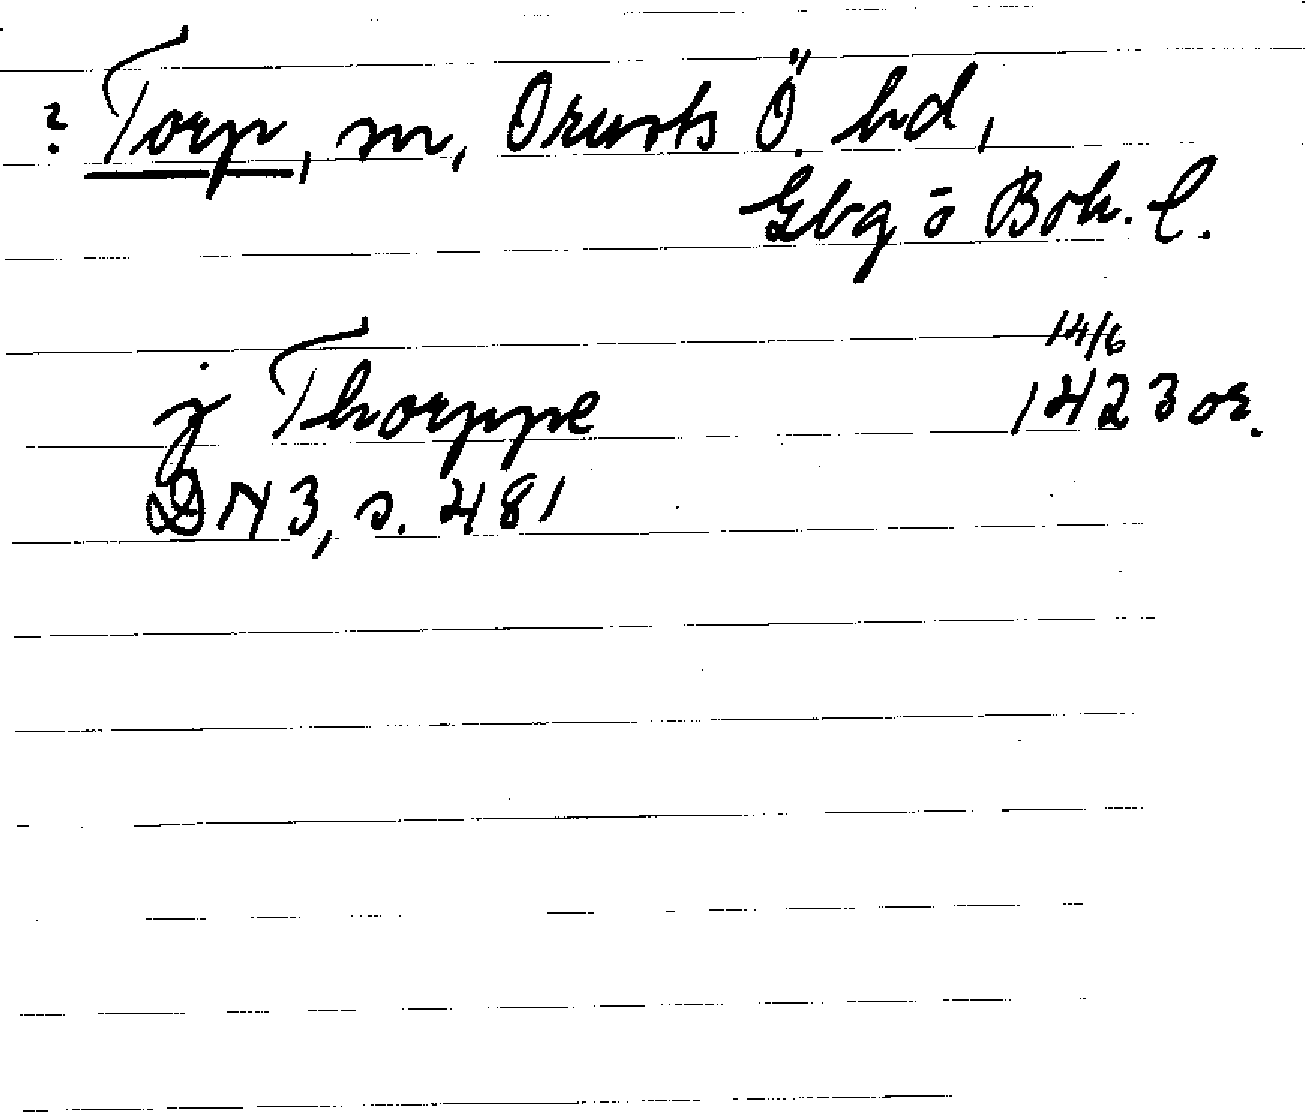 ? Torp, sn, Orusts Ö. hd,
Gbg o Boh. l.
j Thorppe 14/6 1423 or.
DN 3, s. 481